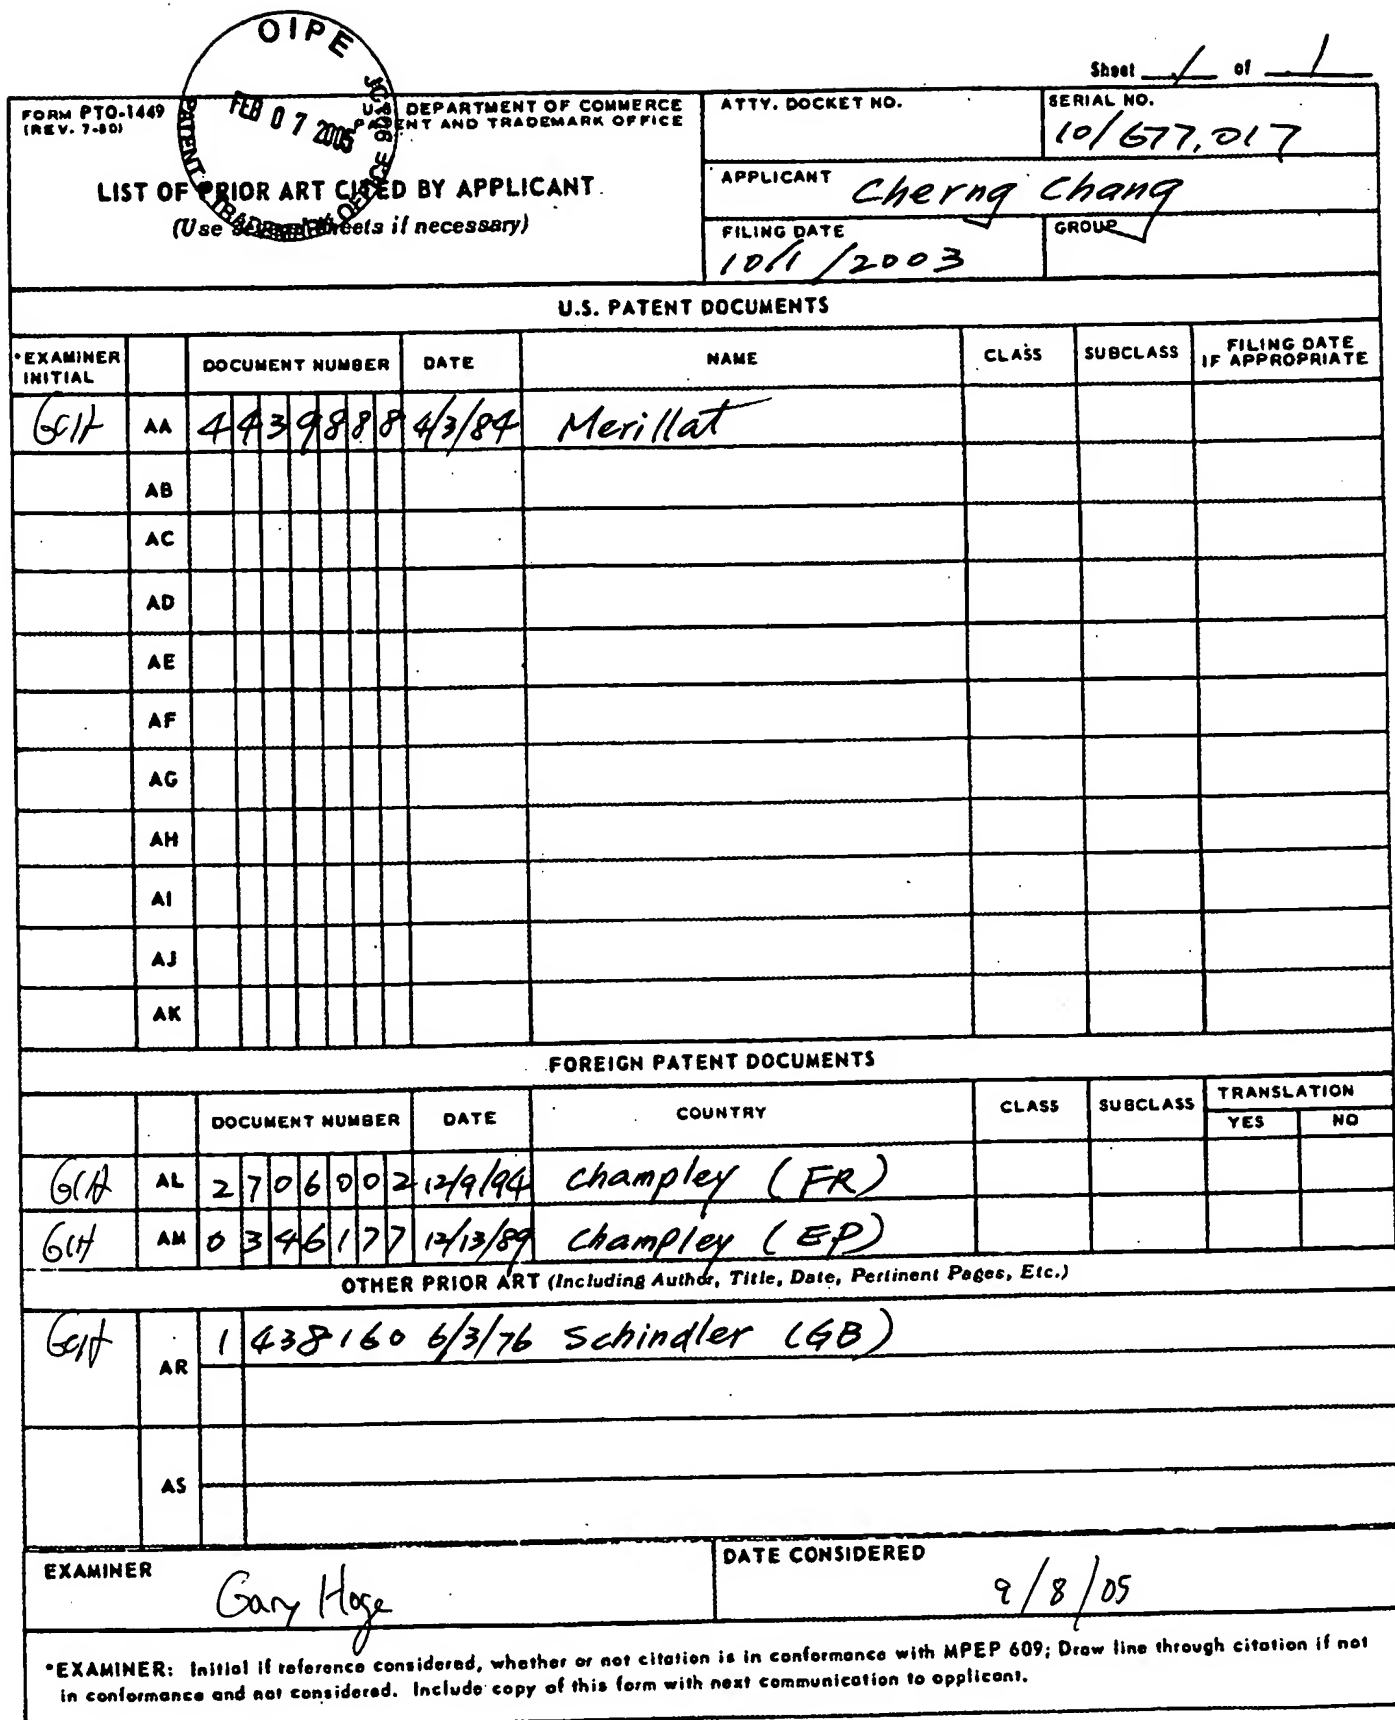 OIPE
FEB 07 2005
PATENT & TRADEMARK OFFICE
Sheet 1 of 1
FORM PTO-1449
(REV. 7-80)
U.S. DEPARTMENT OF COMMERCE
PATENT AND TRADEMARK OFFICE
ATTY. DOCKET NO.
SERIAL NO.
10/677,017
LIST OF PRIOR ART CITED BY APPLICANT
(Use several sheets if necessary)
APPLICANT Cherng Chang
FILING DATE
10/1/2003
GROUP
U.S. PATENT DOCUMENTS
*EXAMINER INITIAL DOCUMENT NUMBER DATE NAME CLASS SUBCLASS FILING DATE IF APPROPRIATE
GCH AA 4439888 4/3/84 Merillat
AB
AC
AD
AE
AF
AG
AH
AI
AJ
AK
FOREIGN PATENT DOCUMENTS
DOCUMENT NUMBER DATE COUNTRY CLASS SUBCLASS TRANSLATION
YES NO
GCH AL 2706002 12/9/94 Champley (FR)
GCH AM 0346177 12/13/89 Champley (EP)
OTHER PRIOR ART (Including Author, Title, Date, Pertinent Pages, Etc.)
GCH AR 1438160 6/3/76 Schindler (GB)
AS
EXAMINER Gary Hoge
DATE CONSIDERED 9/8/05
*EXAMINER: Initial if reference considered, whether or not citation is in conformance with MPEP 609; Draw line through citation if not
in conformance and not considered. Include copy of this form with next communication to applicant.